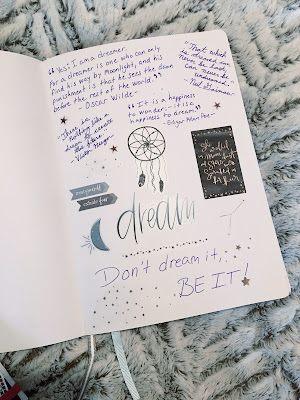 "Yes: I am a dreamer.
For a dreamer is one who can only
find his way by moonlight, and his
punishment is that he sees the dawn
before the rest of the world."
- Oscar Wilde -
which
is dreamed can
never be lost,
can never be
undreamed."
- Neil Gaiman -
"There is
nothing like a
dream to create
the future."
- Victor Hugo -
"It is a happiness
to wonder; -- it is a
happiness to dream."
- Edgar Allan Poe -
dream
Don't dream it,
BE IT!